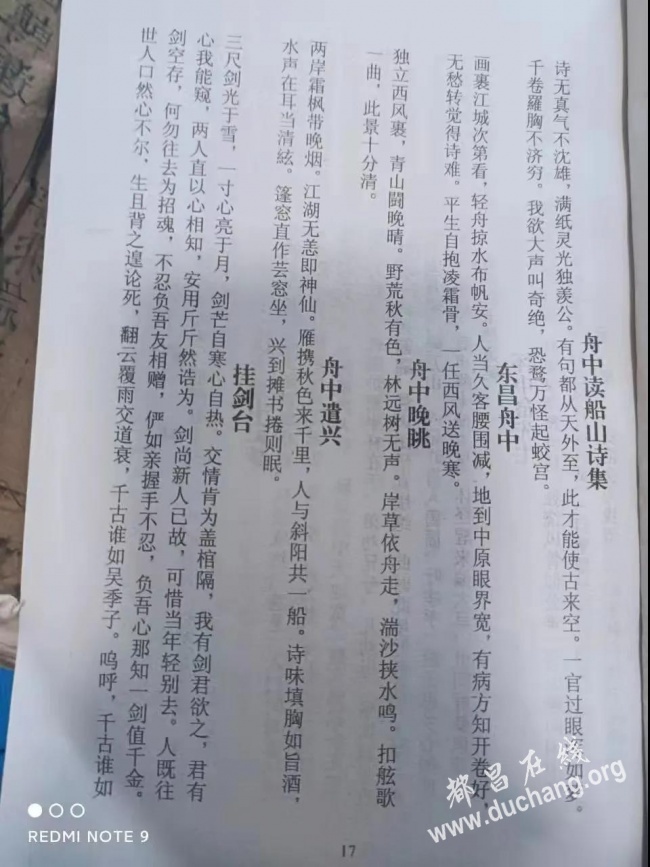 舟中读船山诗集
诗无真气不沈雄，满纸灵光独羡公。有句都从天外至，此才能使古来空。一官过眼如梦。
千卷羅胸不济穷。我欲大声叫奇绝，恐骛万怪起蛟宫。
东昌舟中
画裹江城次第看，轻舟掠水布帆安。人当久客腰围减，地到中原眼界宽，有病方知开卷好，
无愁转觉得诗难。平生自抱凌霜骨，一任西风送晚寒。
舟中晚眺
独立西风裹，青山闘晚晴。野荒秋有色，林远树无声。岸草依舟走，湍沙挟水鸣。扣舷歌
一曲，此景十分清。
舟中遣兴
两岸霜枫带晚烟。江湖无恙即神仙。雁携秋色来千里，人与斜阳共一船。诗味填胸如旨酒，
水声在耳当清絃。篷窓直作芸窓坐，兴到摊书捲则眠。
挂剑台
三尺剑光于雪，一寸心亮于月，剑芒自寒心自热。交情肯为盖棺隔，我有剑君欲之，君有
心我能窥，两人直以心相知，安用斤斤然诰为。剑尚新人已故，可惜当年轻别去。人既往
剑空存，何勿往去为招魂，不忍负吾友相赠，俨如亲握手不忍，负吾心那知一剑值千金。
世人口然心不尔、生且背之遑论死，翻云覆雨交道衰，千古谁如吴季子。呜呼，千古谁如
17
REDMI NOTE 9
都昌在线
www.duchang.org